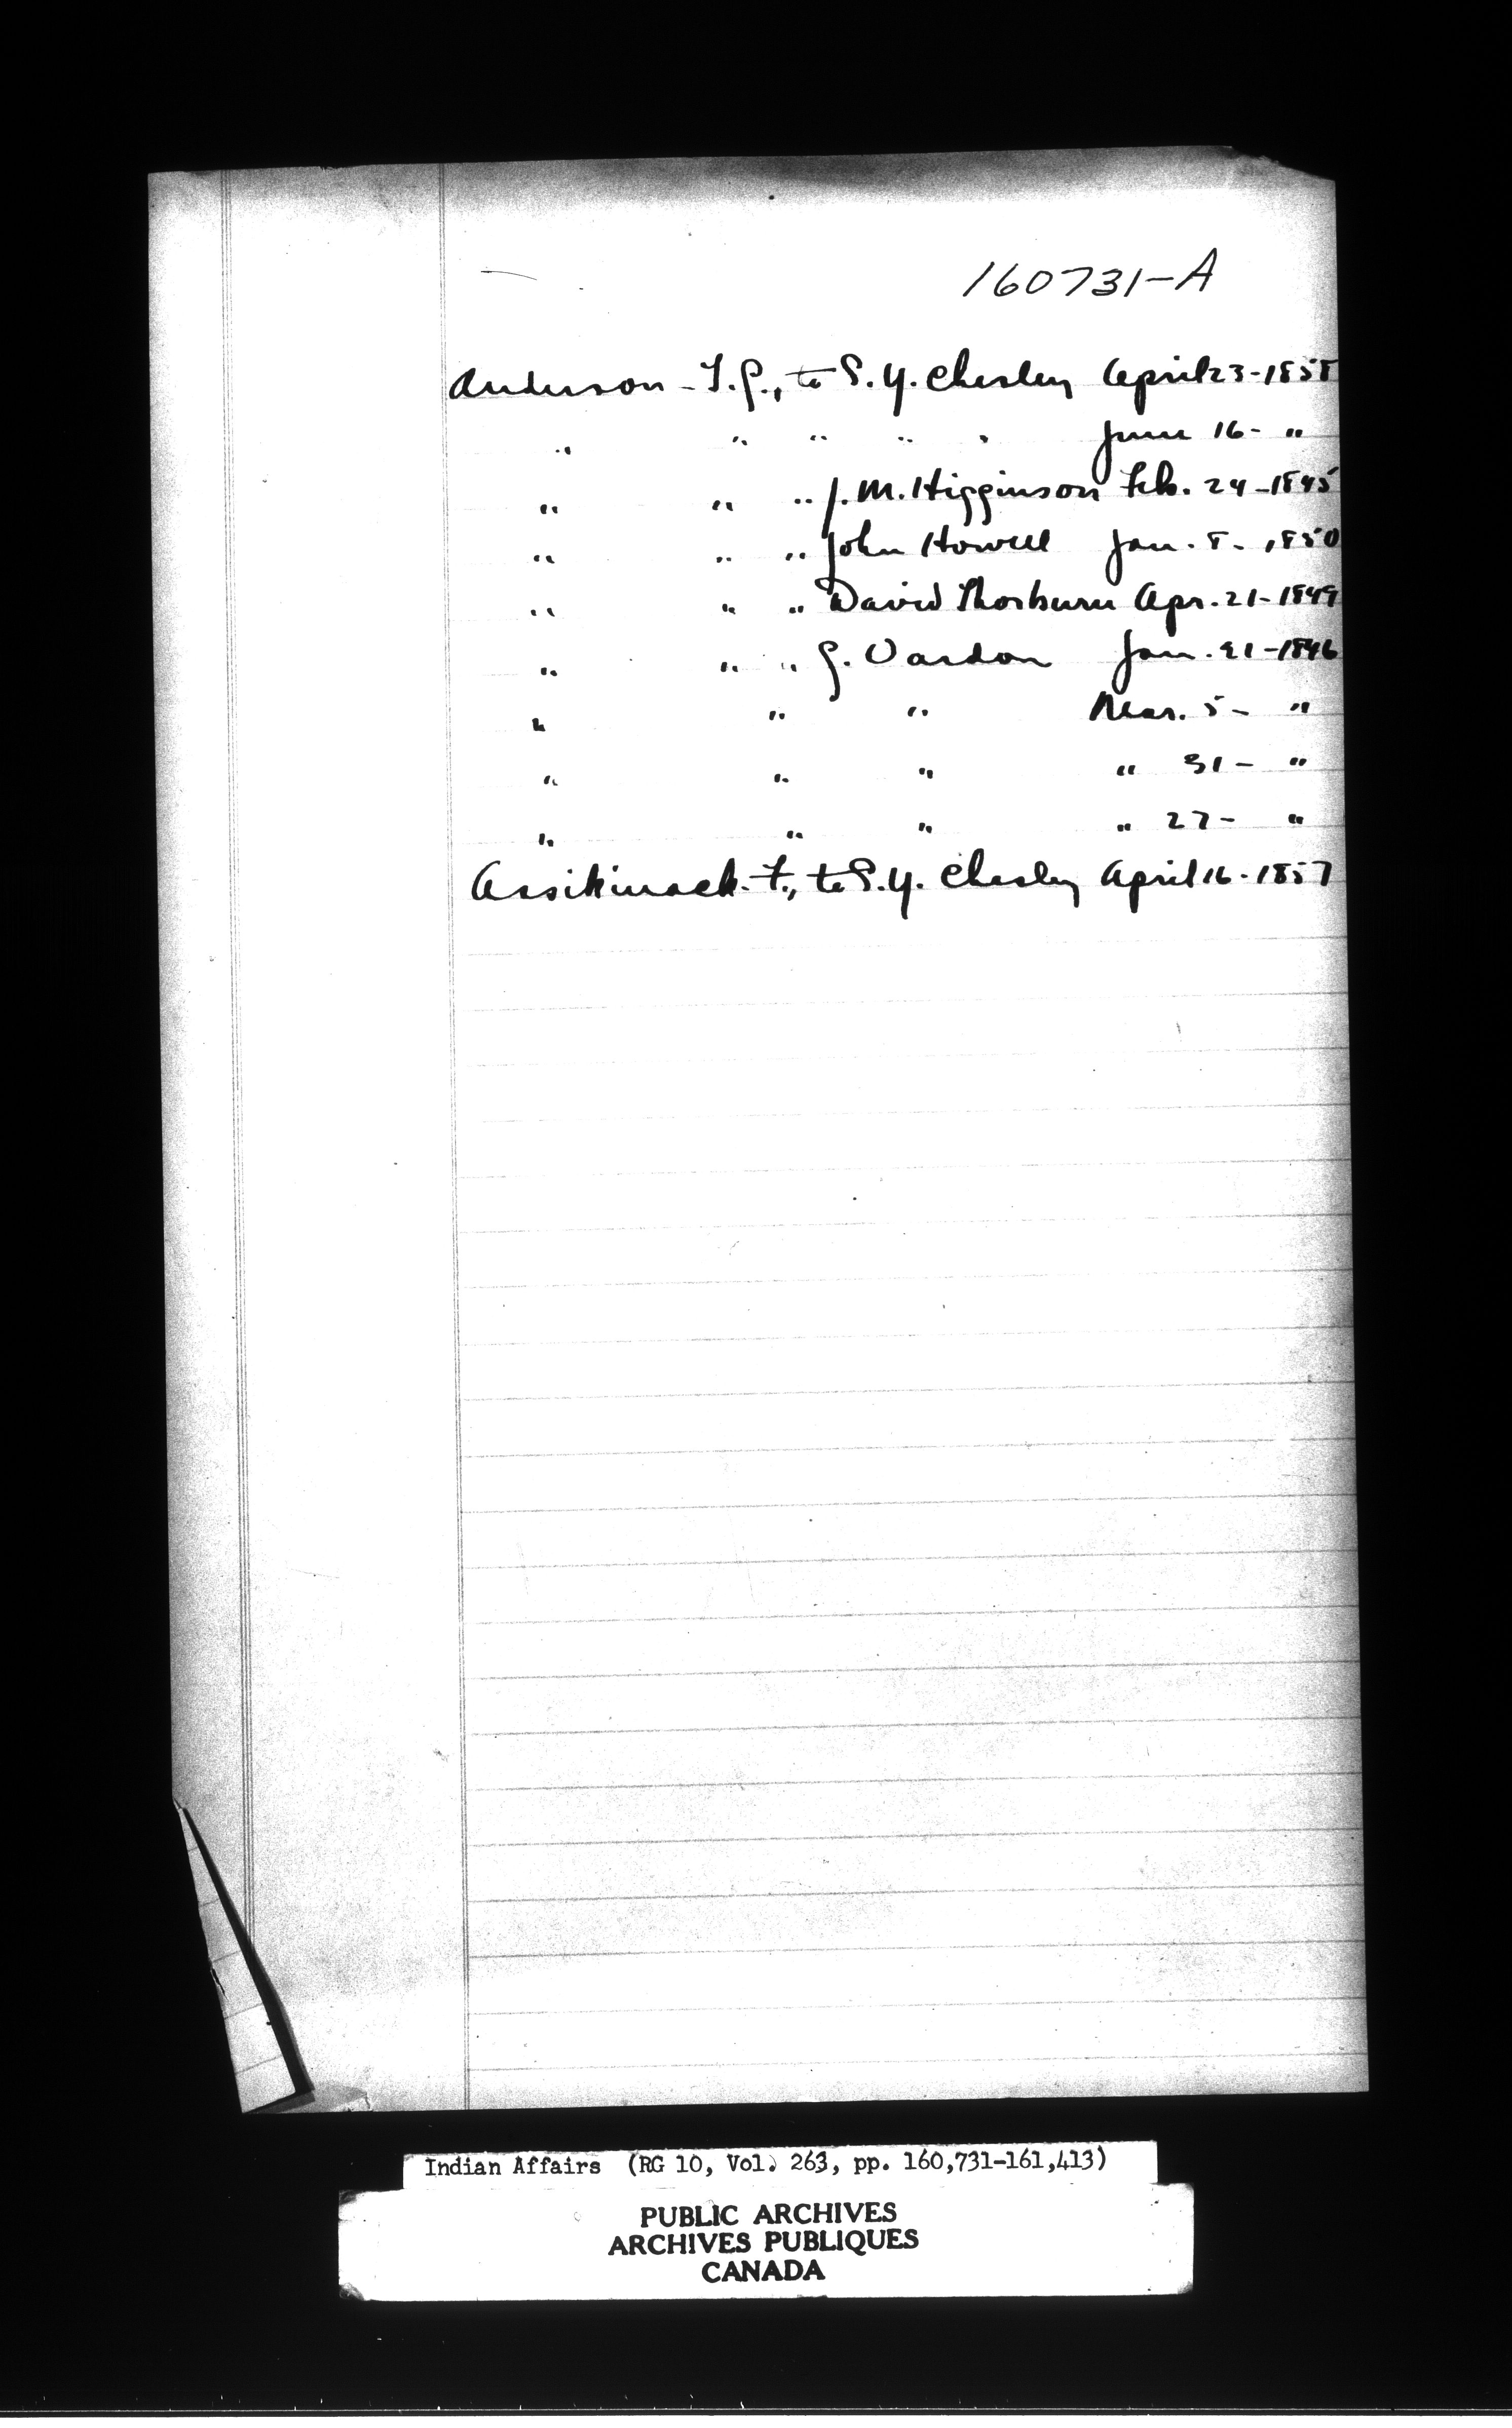 160731-A
Anderson - T. G., to S. Y. Chesley April 23 - 1858
" " " " " June 16 - "
" " " J. M. Higginson Feb. 24 - 1845
" " " John Howell Jan. 8 - 1850
" " " David Thorburn Apr. 21 - 1849
" " " G. Vardon Jan. 21 - 1846
" " " Mar. 5 - "
" " " " 31 - "
" " " " 27 - "
Assikinack - F., to S. Y. Chesley April 16 - 1857
Indian Affairs (RG 10, Vol. 263, pp. 160,731-161,413)
PUBLIC ARCHIVES
ARCHIVES PUBLIQUES
CANADA